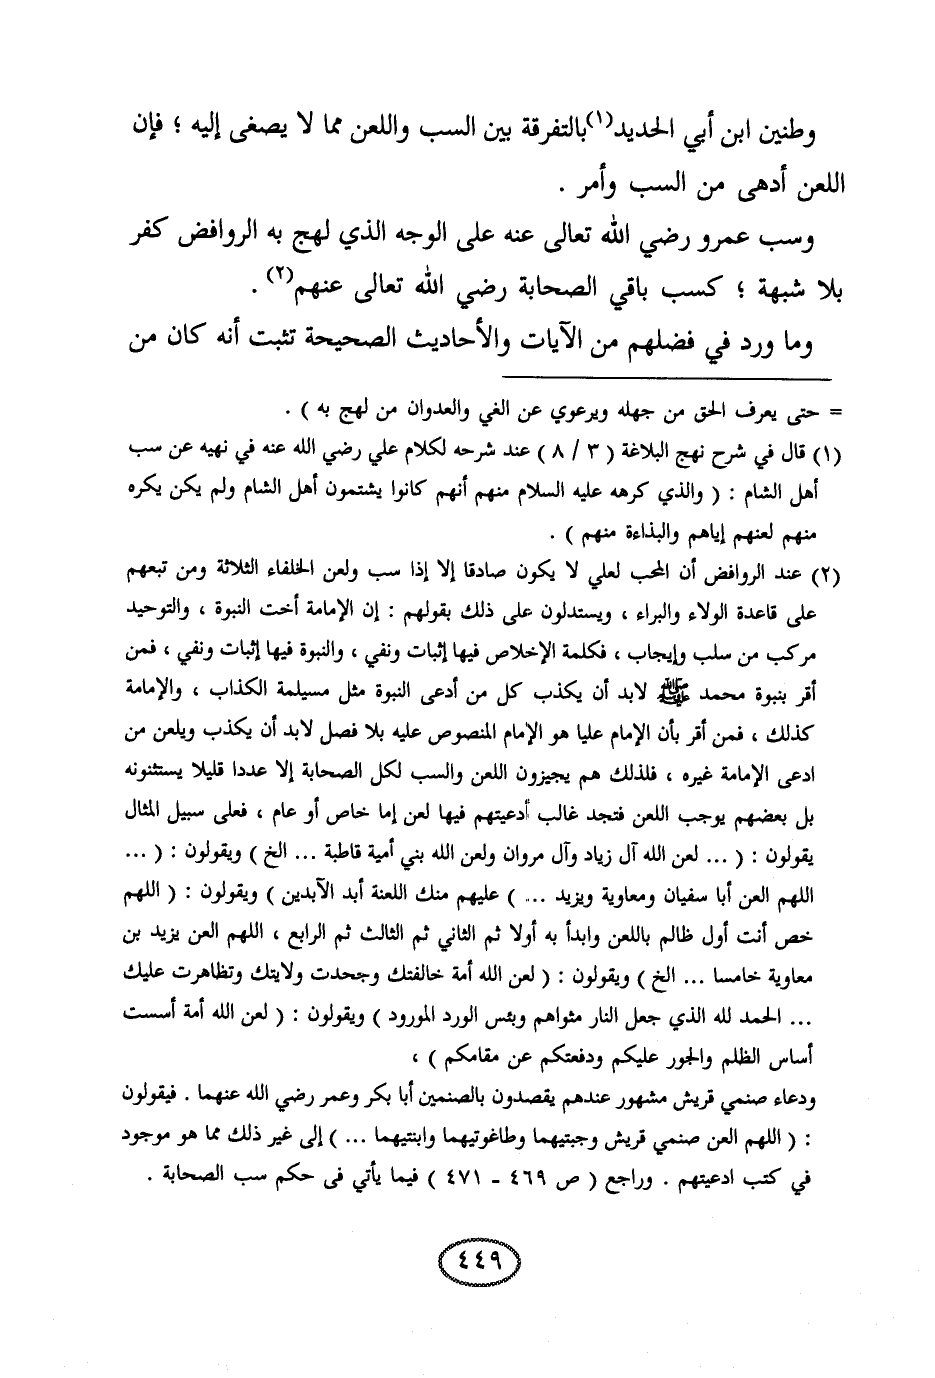 وطنين ابن أبي الحديد(١) بالتفرقة بين السب واللعن مما لا يصغى إليه ؛ فإن
اللعن أدهى من السب وأمر .
وسب عمرو رضي الله تعالى عنه على الوجه الذي لهج به الروافض كفر
بلا شبهة ؛ كسب باقي الصحابة رضي الله تعالى عنهم(٢) .
وما ورد في فضلهم من الآيات والأحاديث الصحيحة تثبت أنه كان من
= حتى يعرف الحق من جهله ويرعوي عن الغي والعدوان من لهج به ) .
(١) قال في شرح نهج البلاغة ( ٣ / ٨ ) عند شرحه لكلام علي رضي الله عنه في نهيه عن سب
أهل الشام : ( والذي كرهه عليه السلام منهم أنهم كانوا يشتمون أهل الشام ولم يكن يكره
منهم لعنهم إياهم والبذاءة منهم ) .
(٢) عند الروافض أن المحب لعلي لا يكون صادقا إلا إذا سب ولعن الخلفاء الثلاثة ومن تبعهم
على قاعدة الولاء والبراء ، ويستدلون على ذلك بقولهم : إن الإمامة أخت النبوة ، والتوحيد
مركب من سلب وإيجاب ، فكلمة الإخلاص فيها إثبات ونفي ، والنبوة فيها إثبات ونفي ، فمن
أقر بنبوة محمد ﷺ لابد أن يكذب كل من أدعى النبوة مثل مسيلمة الكذاب ، والإمامة
كذلك ، فمن أقر بأن الإمام عليا هو الإمام المنصوص عليه بلا فصل لابد أن يكذب ويلعن من
ادعى الإمامة غيره ، فلذلك هم يجيزون اللعن والسب لكل الصحابة إلا عددا قليلا يستثنونه
بل بعضهم يوجب اللعن فتجد غالب أدعيتهم فيها لعن إما خاص أو عام ، فعلى سبيل المثال
يقولون : ( ... لعن الله آل زياد وآل مروان ولعن الله بني أمية قاطبة ... الخ ) ويقولون : ( ...
اللهم العن أبا سفيان ومعاوية ويزيد ... ) عليهم منك اللعنة أبد الآبدين ) ويقولون : ( اللهم
خص أنت أول ظالم باللعن وابدأ به أولا ثم الثاني ثم الثالث ثم الرابع ، اللهم العن يزيد بن
معاوية خامسا ... الخ ) ويقولون : ( لعن الله أمة خالفتك وجحدت ولايتك وتظاهرت عليك
... الحمد لله الذي جعل النار مثواهم وبئس الورد المورود ) ويقولون : ( لعن الله أمة أسست
أساس الظلم والجور عليكم ودفعتكم عن مقامكم ) ،
ودعاء صنمي قريش مشهور عندهم يقصدون بالصنمين أبا بكر وعمر رضي الله عنهما . فيقولون
: ( اللهم العن صنمي قريش وجبتيهما وطاغوتيهما وابنتيهما ... ) إلى غير ذلك مما هو موجود
في كتب ادعيتهم . وراجع ( ص ٤٦٩ - ٤٧١ ) فيما يأتي فى حكم سب الصحابة .
٤٤٩